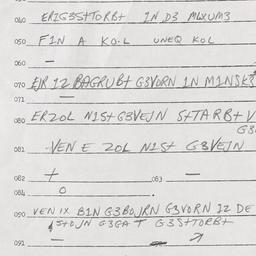 040 ERIG3STTORBT IN D3 MLXUM3
050 FIN A KO.L UNEQ KOL
060 —
070 EJR IZ BAGRUBT G3VORN IN MINSK3
071 —
080 ERZOL NIST G3VEJN STTARBT V
G3
081 VEN E ZOL NIST G3VEJN
082 + 083 —
084 O
090 VEN IX BIN G3BOJRN G3VORN IZ DE
STOJN G3GAT G3STTORBT
091 —